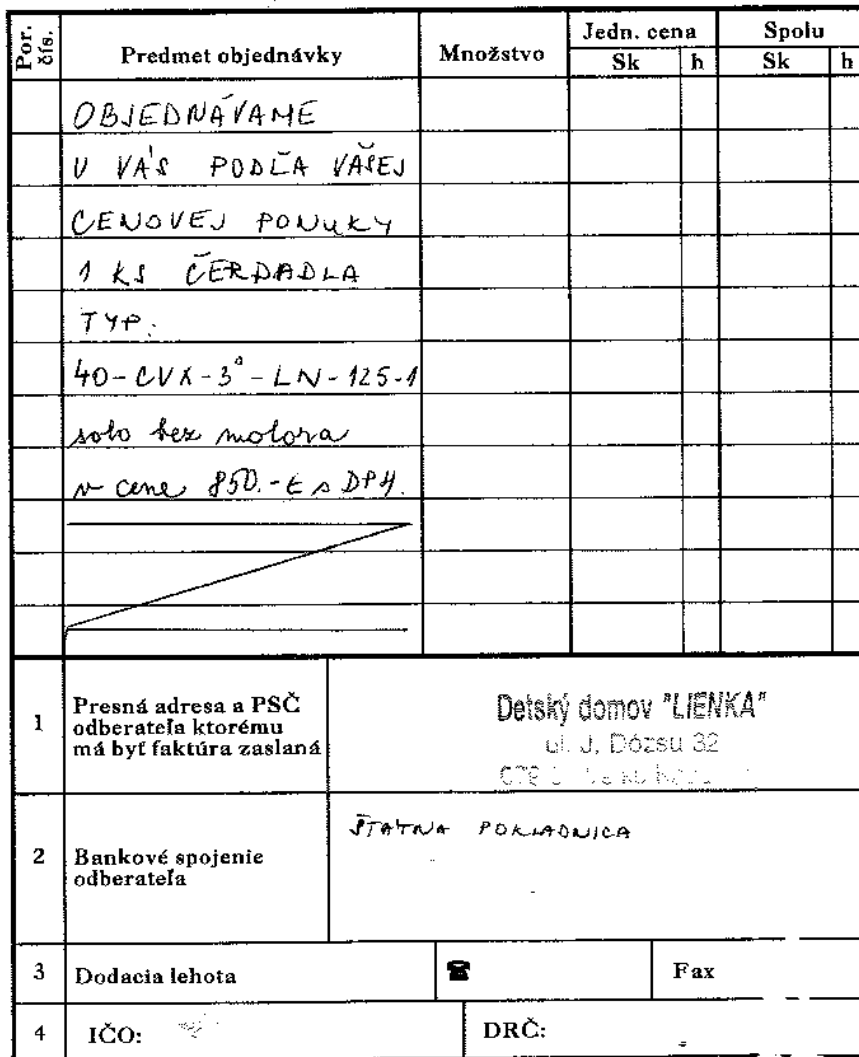 Por. čís. Predmet objednávky Množstvo Jedn. cena Spolu
Sk h Sk h
OBJEDNÁVAME
U VÁS PODĽA VAŠEJ
CENOVEJ PONUKY
1 KS ČERDADLA
TYP:
40-CVX-3°-LN-125-1
solo bez motora
v cene 850.-€ s DPH.
1 Presná adresa a PSČ
odberateľa ktorému
má byť faktúra zaslaná
Detský domov "LIENKA"
ul. J. Dózsu 32
2 Bankové spojenie
odberateľa
ŠTÁTNA POKLADNICA
3 Dodacia lehota ☎ Fax
4 IČO: DRČ: